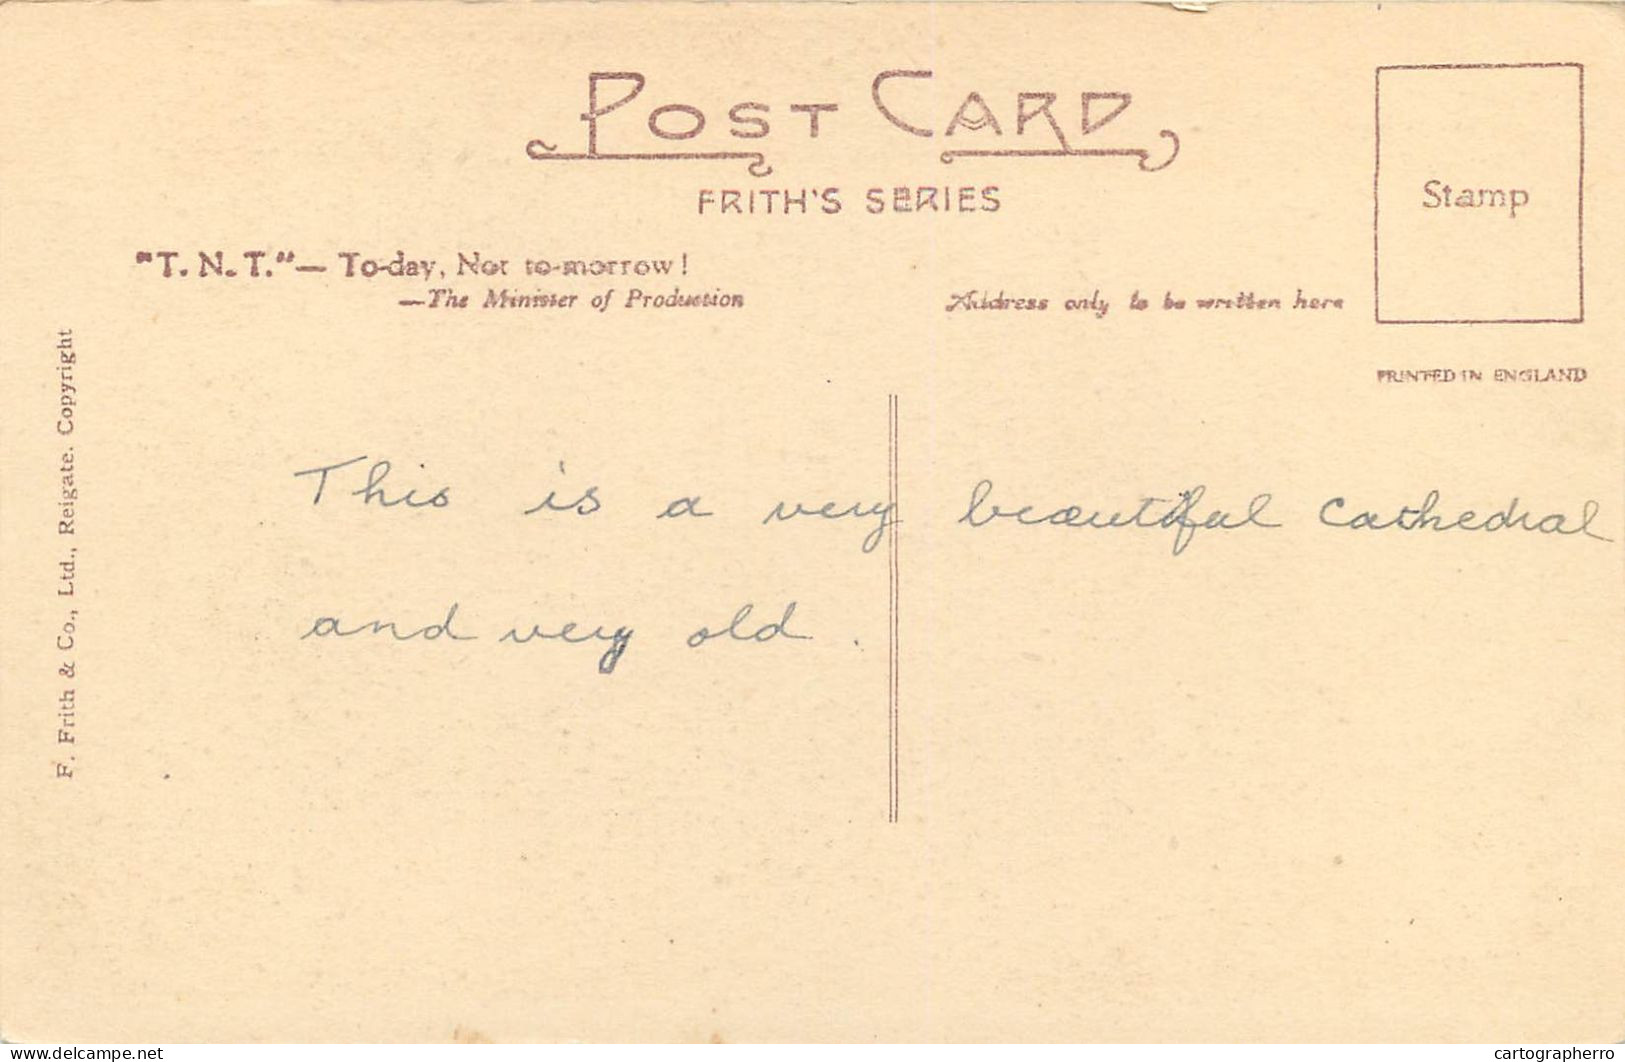 POST CARD
FRITH'S SERIES
Stamp
"T. N. T."— To-day, Not to-morrow!
—The Minister of Production
Address only to be written here
PRINTED IN ENGLAND
F. Frith & Co., Ltd., Reigate. Copyright
This is a very beautiful Cathedral
and very old.
delcampe.net
cartographerro